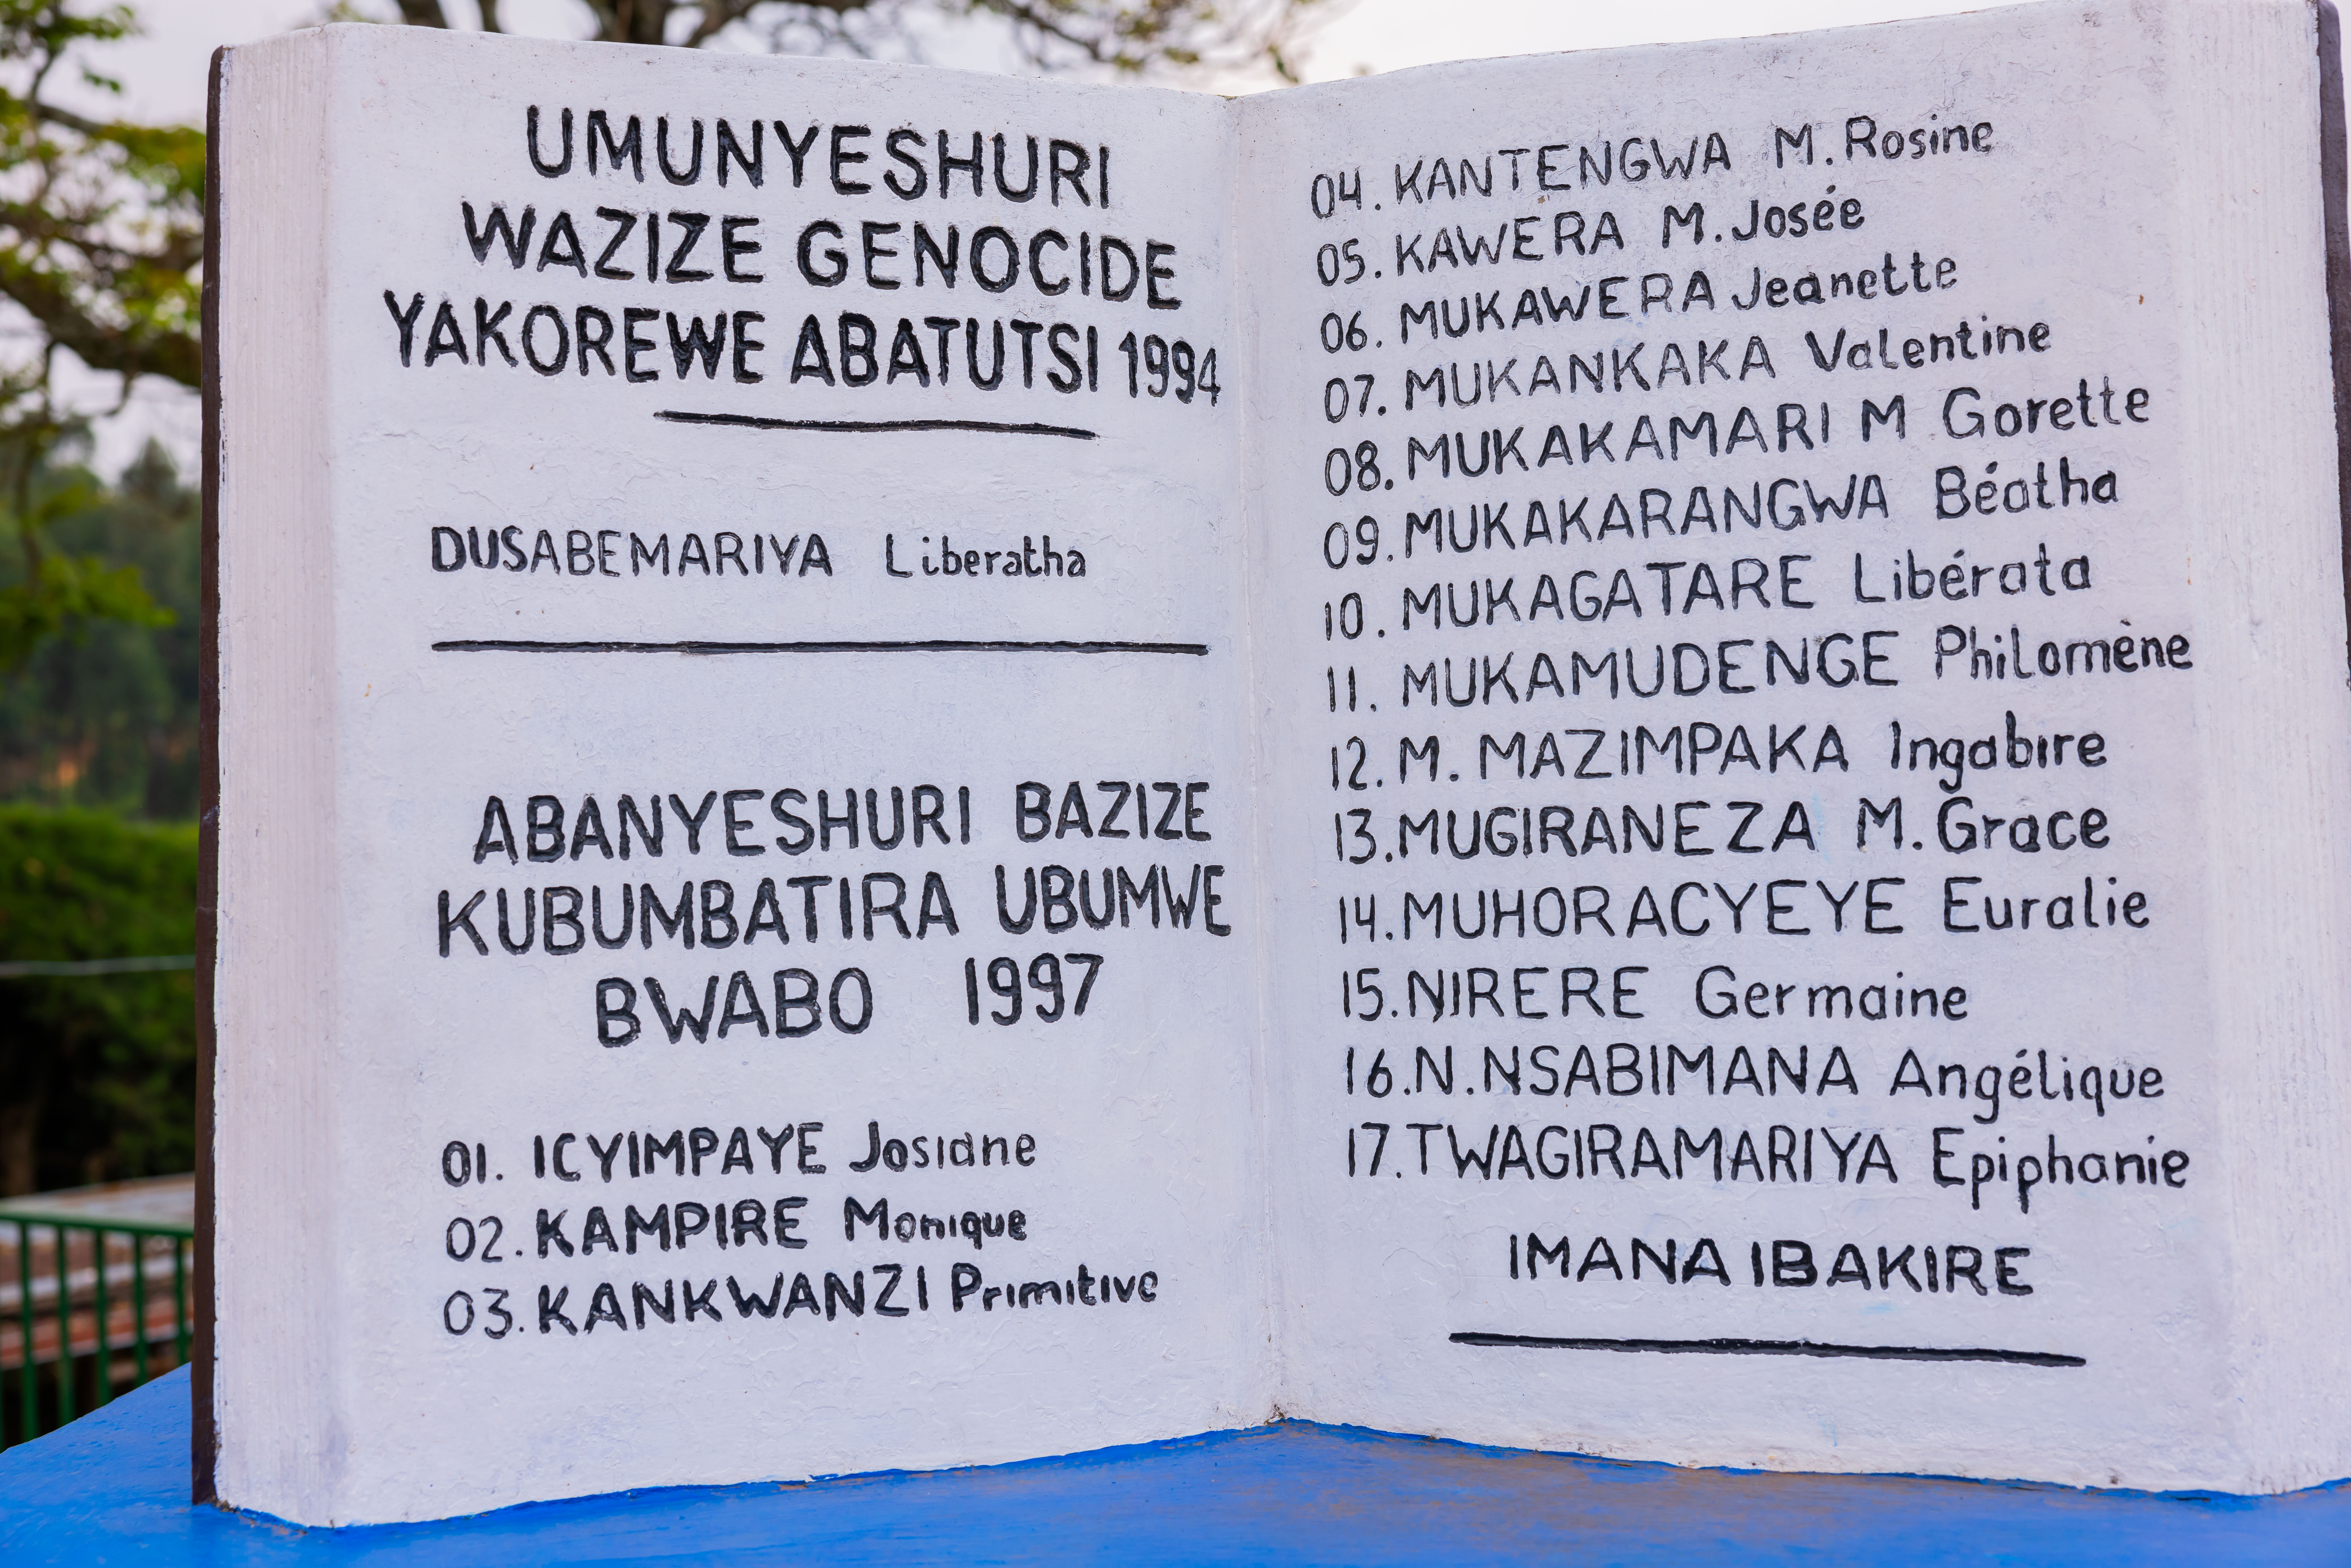 UMUNYESHURI
WAZIZE GENOCIDE
YAKOREWE ABATUTSI 1994
DUSABEMARIYA Liberatha
ABANYESHURI BAZIZE
KUBUMBATIRA UBUMWE
BWABO 1997
01. ICYIMPAYE Josiane
02. KAMPIRE Monique
03. KANKWANZI Primitive
04. KANTENGWA M. Rosine
05. KAWERA M. Josée
06. MUKAWERA Jeanette
07. MUKANKAKA Valentine
08. MUKAKAMARI M Gorette
09. MUKAKARANGWA Béatha
10. MUKAGATARE Libérata
11. MUKAMUDENGE Philomène
12. M. MAZIMPAKA Ingabire
13. MUGIRANEZA M. Grace
14. MUHORACYEYE Euralie
15. NJRERE Germaine
16. N. NSABIMANA Angélique
17. TWAGIRAMARIYA Epiphanie
IMANA IBAKIRE